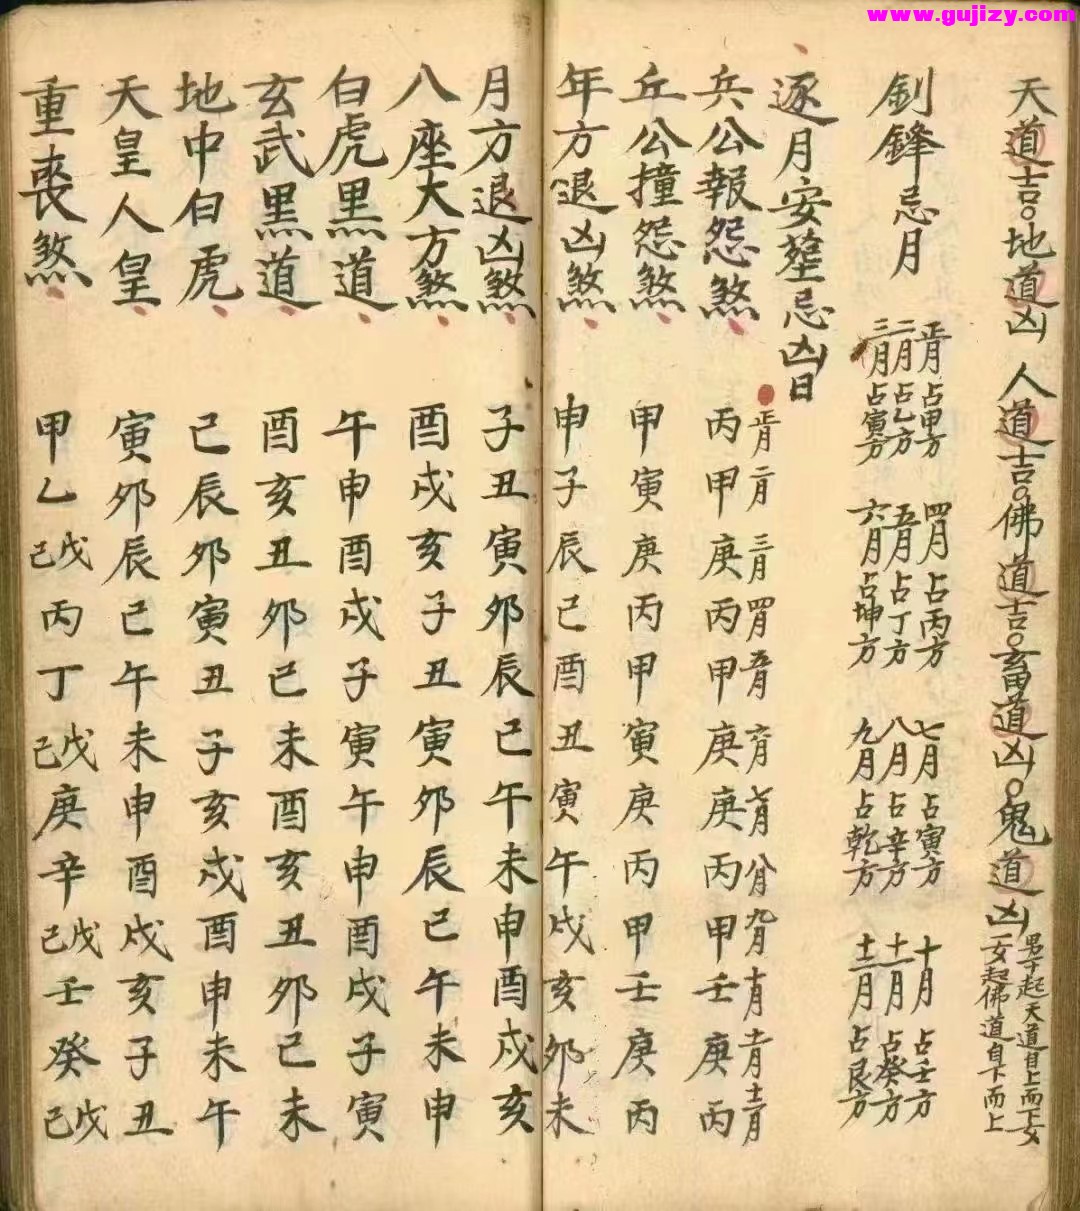 www.gujizy.com
天道吉。地道凶 人道吉。佛道吉。畜道凶。鬼道凶 男子起天道自上而下女
一女起佛道自下而上
釗鋒忌月
正月占甲方 四月占丙方 七月占寅方 十月占壬方
二月占乙方 五月占丁方 八月占辛方 十一月占癸方
三月占寅方 六月占坤方 九月占乾方 十二月占艮方
逐月安塟忌凶日
正月 二月 三月 四月 五月 六月 七月 八月 九月 十月 十一月 十二月
兵公報怨煞 丙甲庚丙甲庚庚丙甲壬庚丙
丘公撞怨煞 甲寅庚丙甲寅庚丙甲壬庚丙
年方退凶煞 申子辰巳酉丑寅午戌亥夘未
月方退凶煞 子丑寅夘辰巳午未申酉戌亥
八座大方煞 酉戌亥子丑寅夘辰巳午未申
白虎黑道 午申酉戌子寅午申酉戌子寅
玄武黑道 酉亥丑夘巳未酉亥丑夘己未
地中白虎 巳辰夘寅丑子亥戌酉申未午
天皇人皇 寅夘辰巳午未申酉戌亥子丑
重喪煞 甲乙戊己丙丁戊己庚辛戊己壬癸戊己